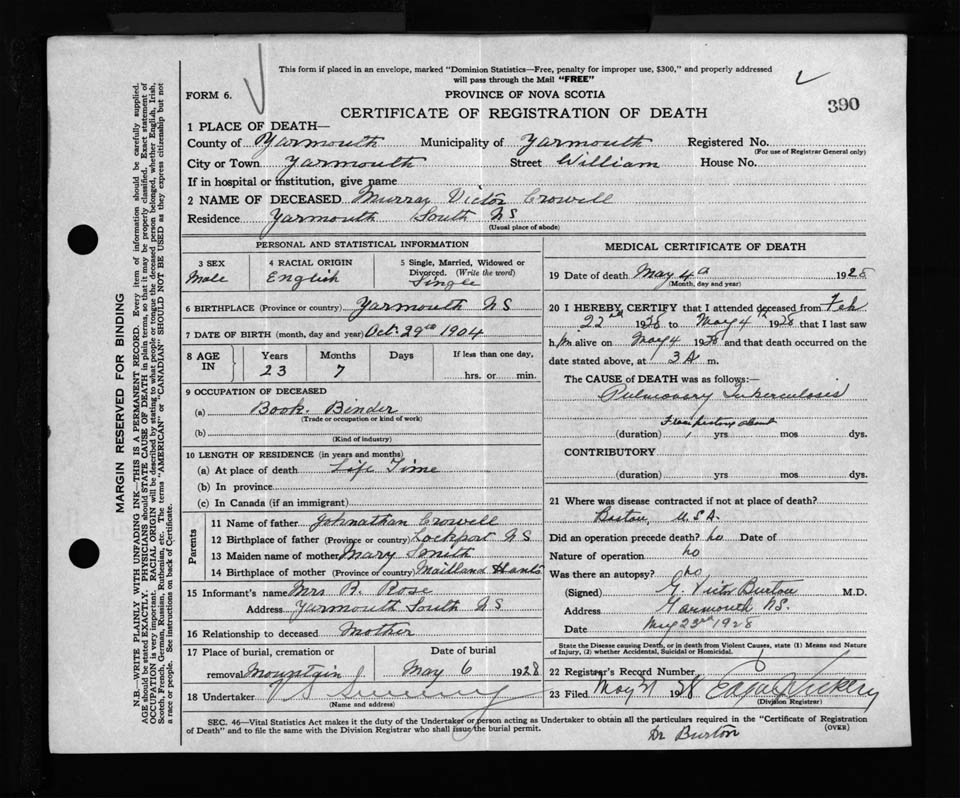 This form if placed in an envelope, marked "Dominion Statistics—Free, penalty for improper use, $300," and properly addressed
will pass through the Mail "FREE"
FORM 6.
PROVINCE OF NOVA SCOTIA
390
CERTIFICATE OF REGISTRATION OF DEATH
1 PLACE OF DEATH—
County of Yarmouth Municipality of Yarmouth Registered No.
(For use of Registrar General only)
City or Town Yarmouth Street William House No.
If in hospital or institution, give name
2 NAME OF DECEASED Murray Victor Crowell
Residence Yarmouth South NS
(Usual place of abode)
PERSONAL AND STATISTICAL INFORMATION
3 SEX 4 RACIAL ORIGIN 5 Single, Married, Widowed or
Divorced. (Write the word)
Male English Single
6 BIRTHPLACE (Province or country) Yarmouth NS
7 DATE OF BIRTH (month, day and year) Oct. 29th 1904
8 AGE IN Years Months Days If less than one day,
23 7 hrs. or min.
9 OCCUPATION OF DECEASED
(a) Book Binder
(Trade or occupation or kind of work)
(b)
(Kind of industry)
10 LENGTH OF RESIDENCE (in years and months)
(a) At place of death Life Time
(b) In province
(c) In Canada (if an immigrant)
Parents
11 Name of father Johnathan Crowell
12 Birthplace of father (Province or country) Lockport NS
13 Maiden name of mother Mary Smith
14 Birthplace of mother (Province or country) Maitland Hants
15 Informant's name Mrs R. Rose
Address Yarmouth South NS
16 Relationship to deceased Mother
17 Place of burial, cremation or Date of burial
removal Mountain May 6 1928
18 Undertaker
(Name and address)
MEDICAL CERTIFICATE OF DEATH
19 Date of death May 4th 1928
(Month, day and year)
20 I HEREBY CERTIFY that I attended deceased from Feb
22nd 1928 to May 4th 1928 that I last saw
him alive on May 4 1928 and that death occurred on the
date stated above, at 3 A m.
The CAUSE of DEATH was as follows:—
Pulmonary Tuberculosis
(duration) 1 yrs mos dys.
CONTRIBUTORY
(duration) yrs mos dys.
21 Where was disease contracted if not at place of death?
Boston, USA.
Did an operation precede death? no Date of
Nature of operation no
Was there an autopsy? no
(Signed) G. Victor Burton M.D.
Address Yarmouth NS.
Date May 23rd 1928
State the Disease causing Death, or in death from Violent Causes, state (1) Means and Nature
of Injury, (2) whether Accidental, Suicidal or Homicidal.
22 Register's Record Number
23 Filed May 1928 Edgar Vickery
(Division Registrar)
SEC. 46—Vital Statistics Act makes it the duty of the Undertaker or person acting as Undertaker to obtain all the particulars required in the "Certificate of Registration
of Death" and to file the same with the Division Registrar who shall issue the burial permit.
(OVER)
Dr Burton
MARGIN RESERVED FOR BINDING
N.B.—WRITE PLAINLY WITH UNFADING INK—THIS IS A PERMANENT RECORD. Every item of information should be carefully supplied.
AGE should be stated EXACTLY. PHYSICIANS should STATE CAUSE OF DEATH in plain terms, so that it may be properly classified. Exact statement of
OCCUPATION is very important. RACIAL ORIGIN will be described by stating to what people or tongue the deceased person belonged, whether English, Irish,
Scotch, French, German, Russian, Ruthenian, etc. The terms "AMERICAN" or "CANADIAN" SHOULD NOT BE USED as they express citizenship but not
a race or people. See instructions on back of Certificate.